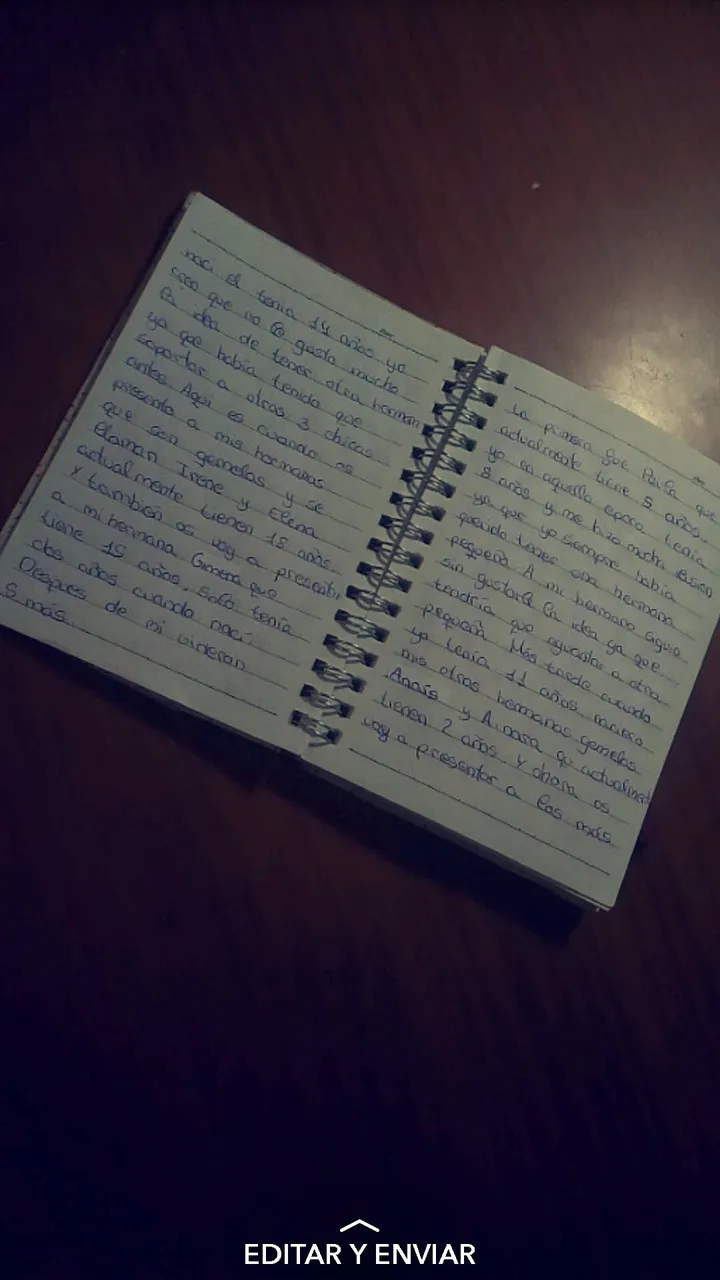 naci el tenia 14 años yo
creo que no le gusto mucho
la idea de tener otra herman
ya que habia tenido que
soportar a otras 3 chicas
antes. Aqui es cuando os
presento a mis hermanas
que son gemelas y se
llaman Irene y Elena
actualmente tienen 18 años
y también os voy a presentar
a mi hermana que
tiene 15 años, solo tenia
dos años cuando naci.
Despues de mi vinieron
5 más.
La primera fue Paula que
actualmente tiene 5 años..
yo en aquella epoca tenia
8 años y me hizo mucha ilusion
ya que yo siempre habia
querido tener una hermana
pequeña. A mi hermano siguio
sin gustarle la idea ya que
tendria que aguantar a otra
pequeña. Más tarde cuando
yo tenia 11 años, nacieron
mis otras hermanas gemelas
Anais y Ainara qu actualment
tienen 2 años y ahora os
voy a presentar a los más
EDITAR Y ENVIAR